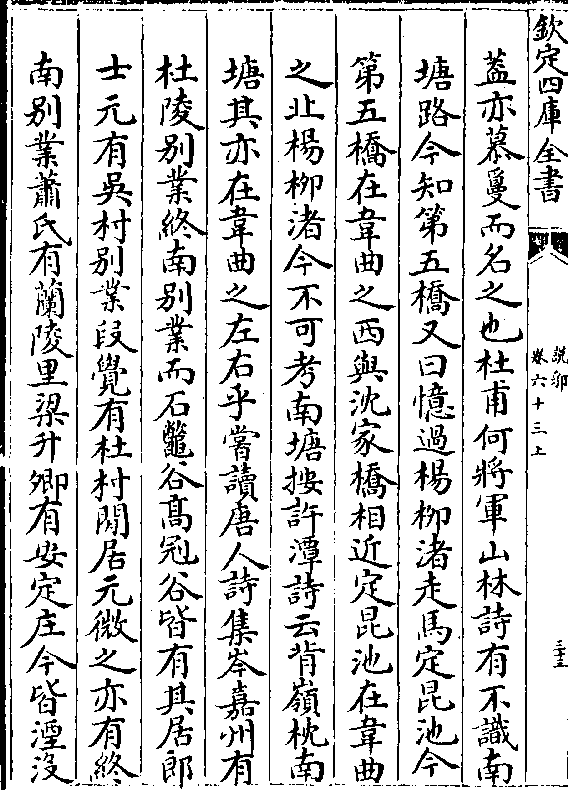 欽定四庫全書
說郛
卷六十三上
三十三
蓋亦慕曼而名之也杜甫何將軍山林詩有不識南
塘路今知第五橋又曰憶過楊柳渚走馬定昆池今
第五橋在韋曲之西與沈家橋相近定昆池在韋曲
之北楊柳渚今不可考南塘按許潭詩云背嶺枕南
塘其亦在韋曲之左右乎嘗讀唐人詩集岑嘉州有
杜陵别業終南别業而石鼈谷高冠谷皆有其居郎
士元有吳村别業段覺有杜村閒居元微之亦有終
南别業蕭氏有蘭陵里梁升卿有安定庄今皆湮没